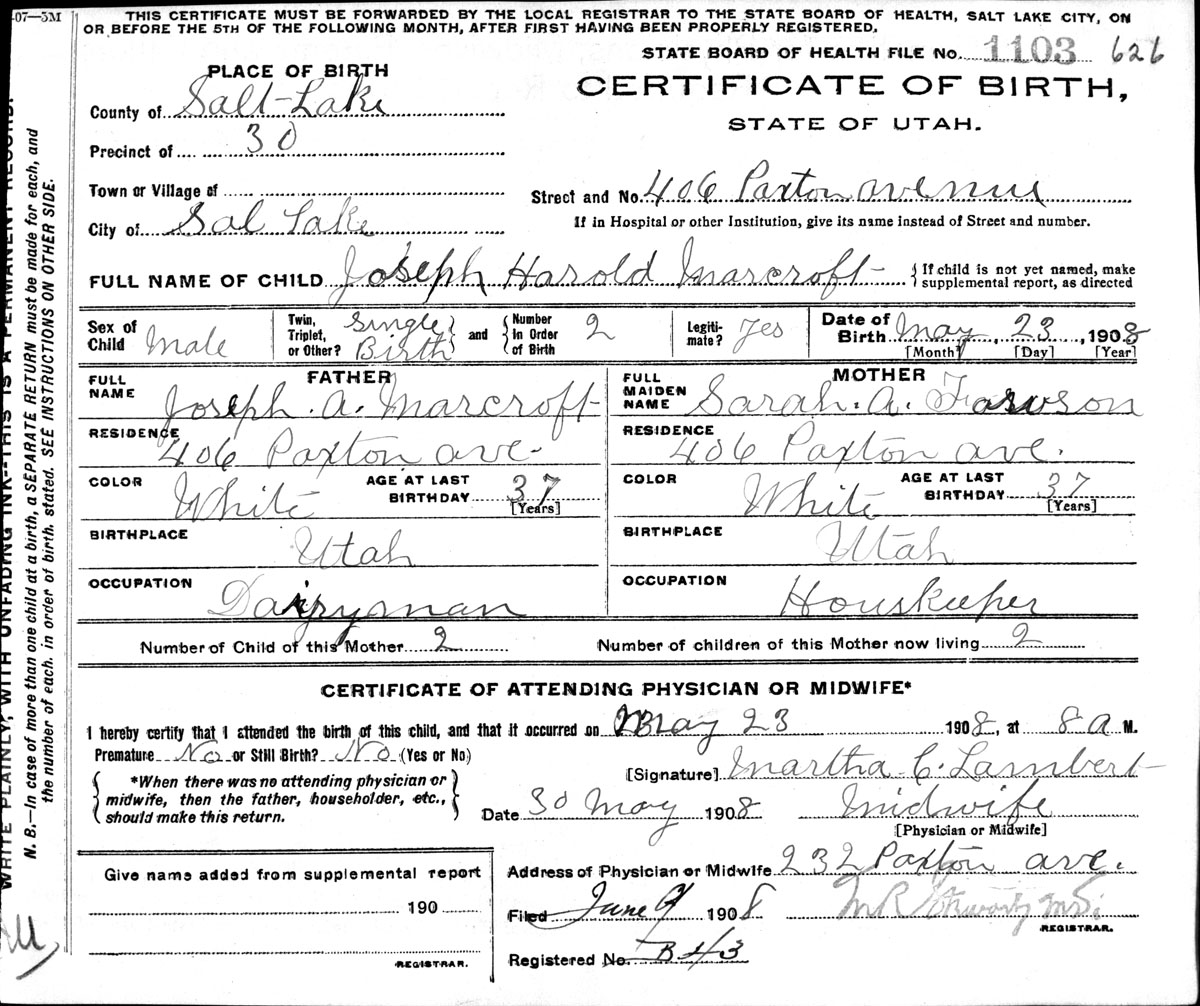 07—3M
THIS CERTIFICATE MUST BE FORWARDED BY THE LOCAL REGISTRAR TO THE STATE BOARD OF HEALTH, SALT LAKE CITY, ON
OR BEFORE THE 5TH OF THE FOLLOWING MONTH, AFTER FIRST HAVING BEEN PROPERLY REGISTERED.
STATE BOARD OF HEALTH FILE No. 1103 626
PLACE OF BIRTH
CERTIFICATE OF BIRTH,
STATE OF UTAH.
County of Salt Lake
Precinct of 30
Town or Village of
Street and No. 406 Paxton avenue
City of Sal Lake
If in Hospital or other Institution, give its name instead of Street and number.
FULL NAME OF CHILD Joseph Harold Marcroft
{If child is not yet named, make
supplemental report, as directed
Sex of Child Male
Twin, Triplet, or Other? Single Birth and Number in Order of Birth 2
Legitimate? Yes
Date of Birth May, 23, 1908
[Month] [Day] [Year]
FATHER
FULL NAME Joseph. A. Marcroft
MOTHER
FULL MAIDEN NAME Sarah. A.
RESIDENCE 406 Paxton ave.
RESIDENCE 406 Paxton ave.
COLOR White AGE AT LAST BIRTHDAY 37 [Years]
COLOR White AGE AT LAST BIRTHDAY 37 [Years]
BIRTHPLACE Utah
BIRTHPLACE Utah
OCCUPATION Dairyman
OCCUPATION Houskeeper
Number of Child of this Mother 2 Number of children of this Mother now living 2
CERTIFICATE OF ATTENDING PHYSICIAN OR MIDWIFE*
I hereby certify that I attended the birth of this child, and that it occurred on May 23 1908, at 8 a M.
Premature No or Still Birth? No (Yes or No)
[Signature] Martha C. Lambert
{*When there was no attending physician or
midwife, then the father, householder, etc.,
should make this return.}
Date 30 May 1908 Midwife
[Physician or Midwife]
Give name added from supplemental report
190
REGISTRAR.
Address of Physician or Midwife 232 Paxton ave.
Filed June 9 1908 M R
REGISTRAR.
Registered No. B 43
WRITE PLAINLY, WITH UNFADING INK--THIS IS A PERMANENT RECORD.
N. B.—In case of more than one child at a birth, a SEPARATE RETURN must be made for each, and
the number of each, in order of birth, stated. SEE INSTRUCTIONS ON OTHER SIDE.